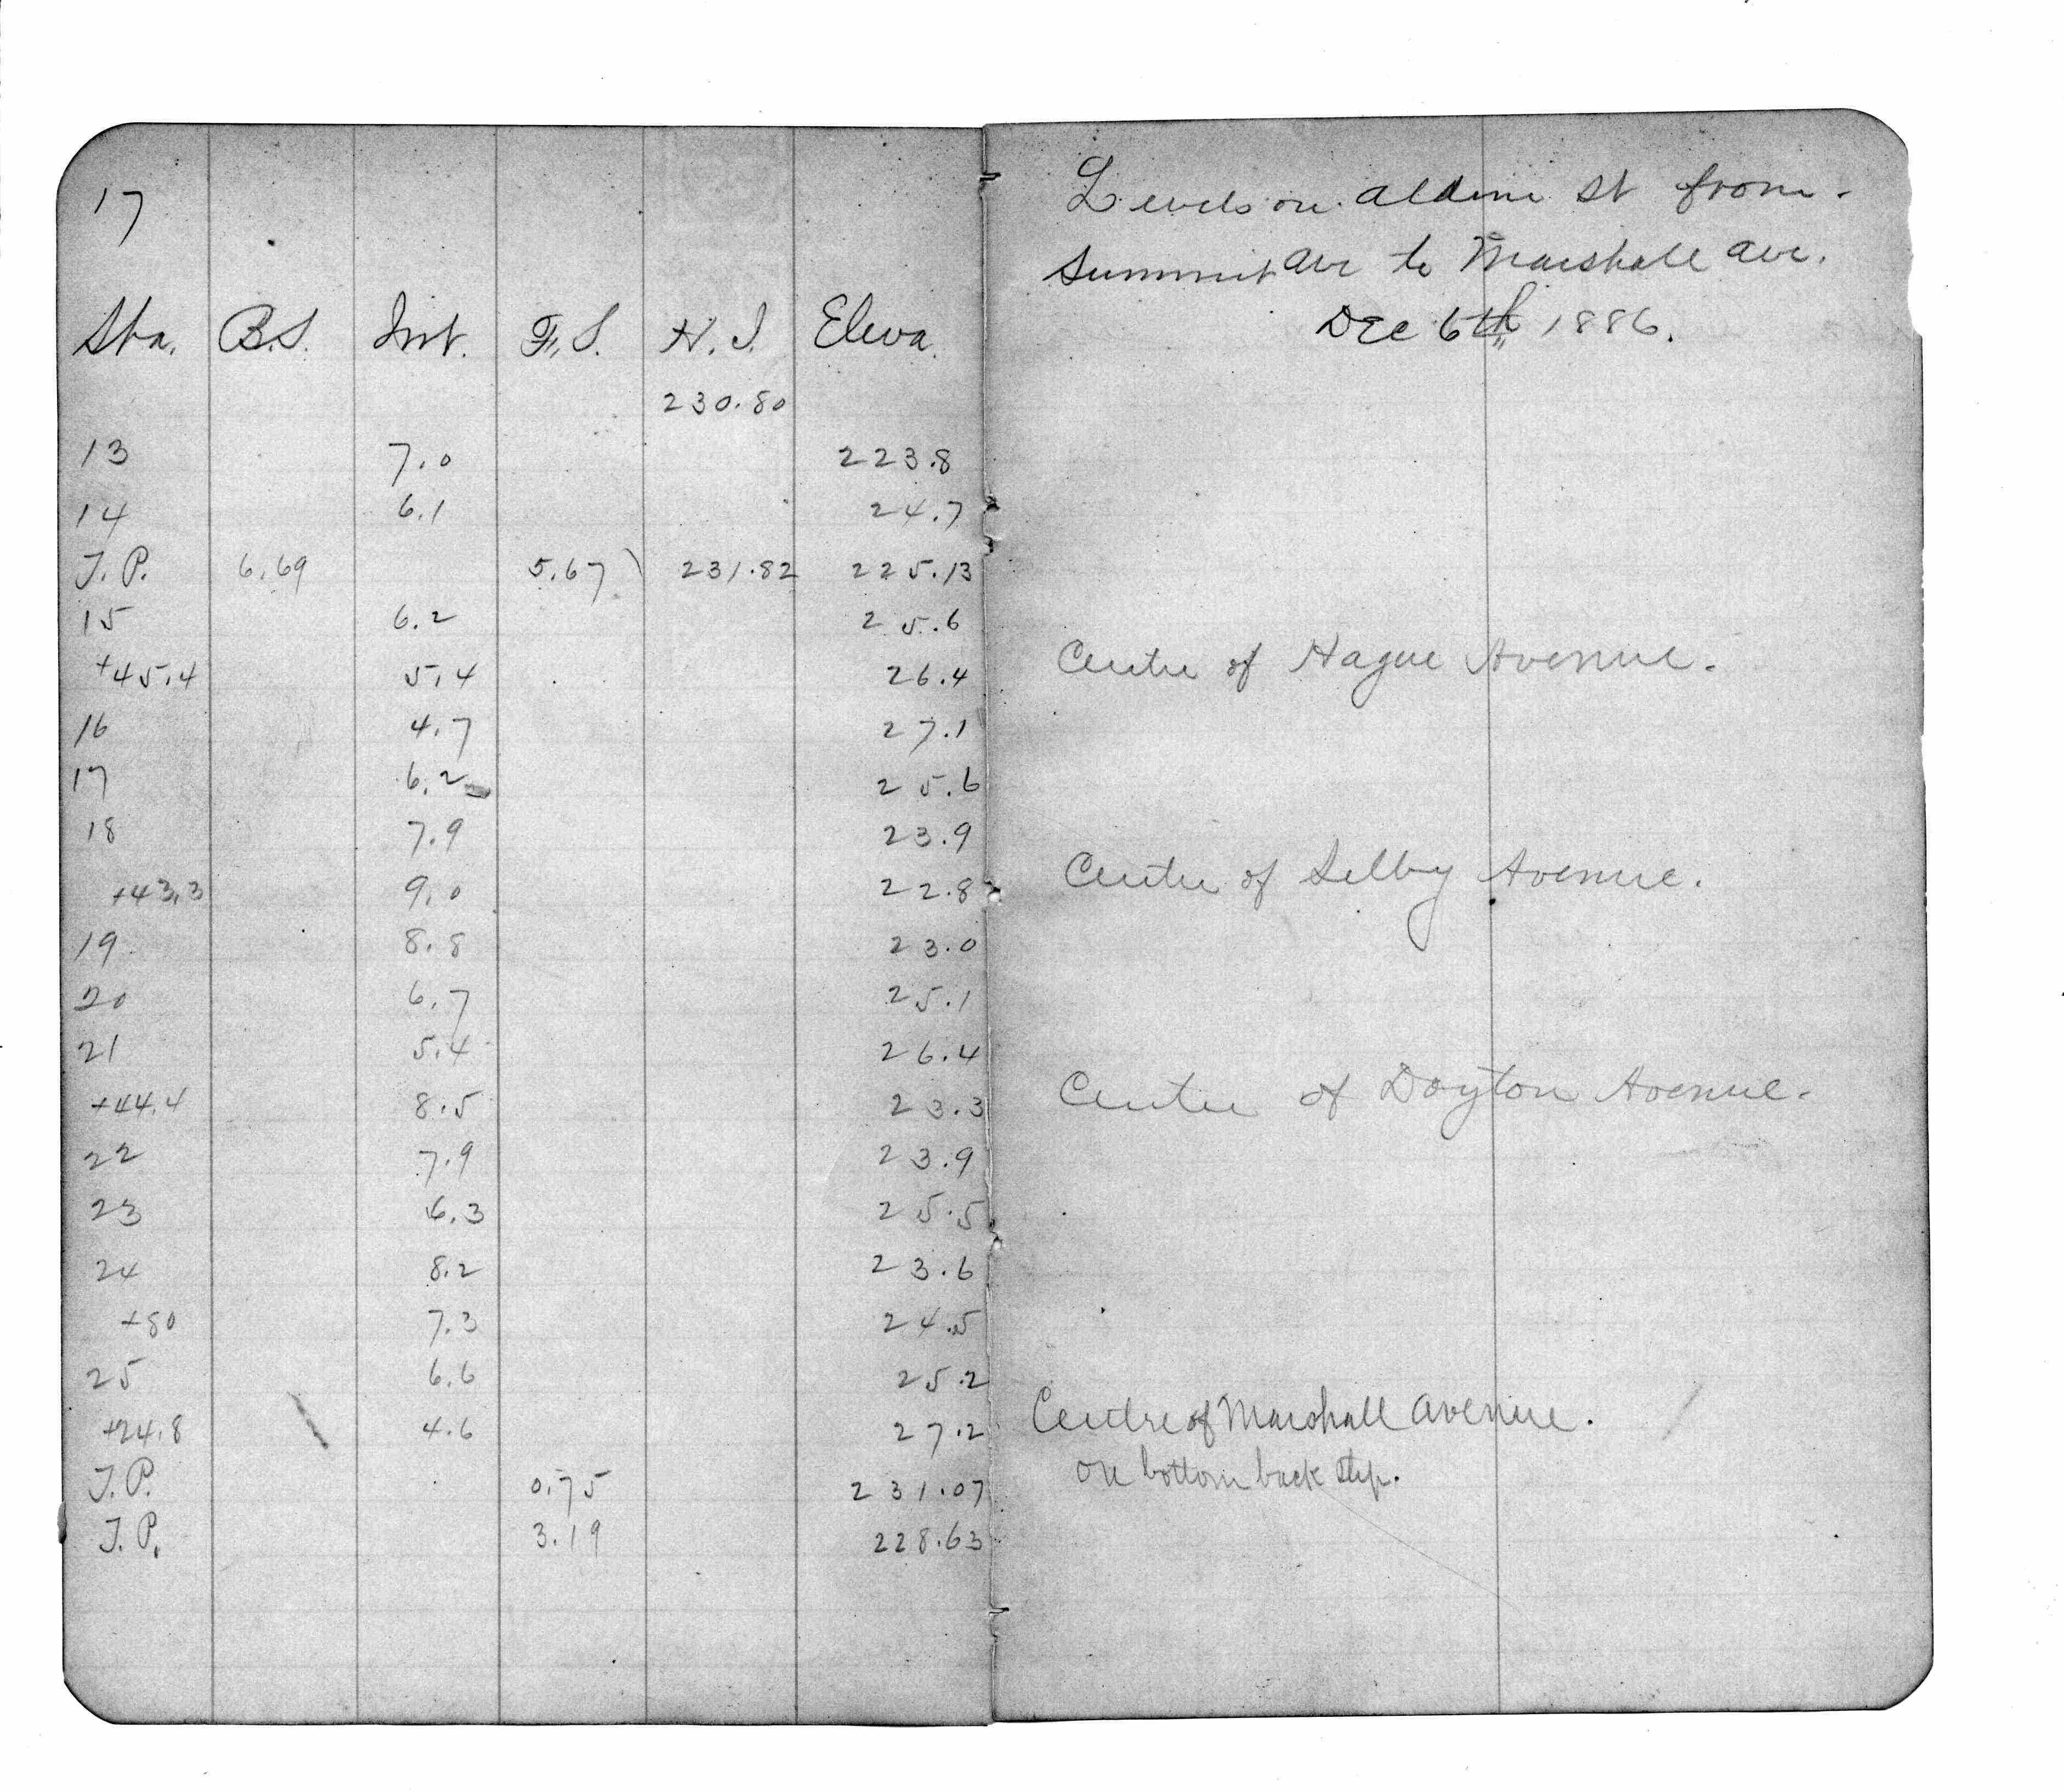 17
Levels on Aldine St from
Summit Ave to Marshall Ave.
Dec 6th 1886.
Sta. B.S. Int. F.S. H.I. Eleva.
230.80
13 7.0 223.8
14 6.1 24.7
T.P. 6.69 5.67 231.82 225.13
15 6.2 25.6
+45.4 5.4 26.4 Centre of Hague Avenue.
16 4.7 27.1
17 6.2 25.6
18 7.9 23.9
+43.3 9.0 22.8 Centre of Selby Avenue.
19 8.8 23.0
20 6.7 25.1
21 5.4 26.4
+44.4 8.5 23.3 Centre of Dayton Avenue.
22 7.9 23.9
23 6.3 25.5
24 8.2 23.6
+80 7.3 24.5
25 6.6 25.2
+24.8 4.6 27.2 Centre of Marshall Avenue.
T.P. 0.75 231.07 on bottom back step.
T.P. 3.19 228.63